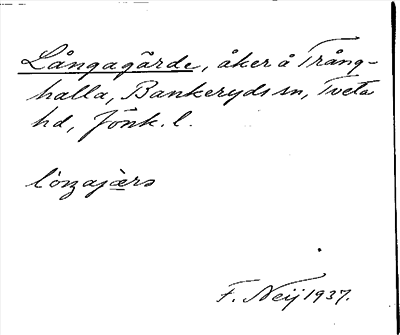 Långagärde, åker å Trång-
halla, Bankeryds sn, Tveta
hd, Jönk. l.
F. Neij 1937.